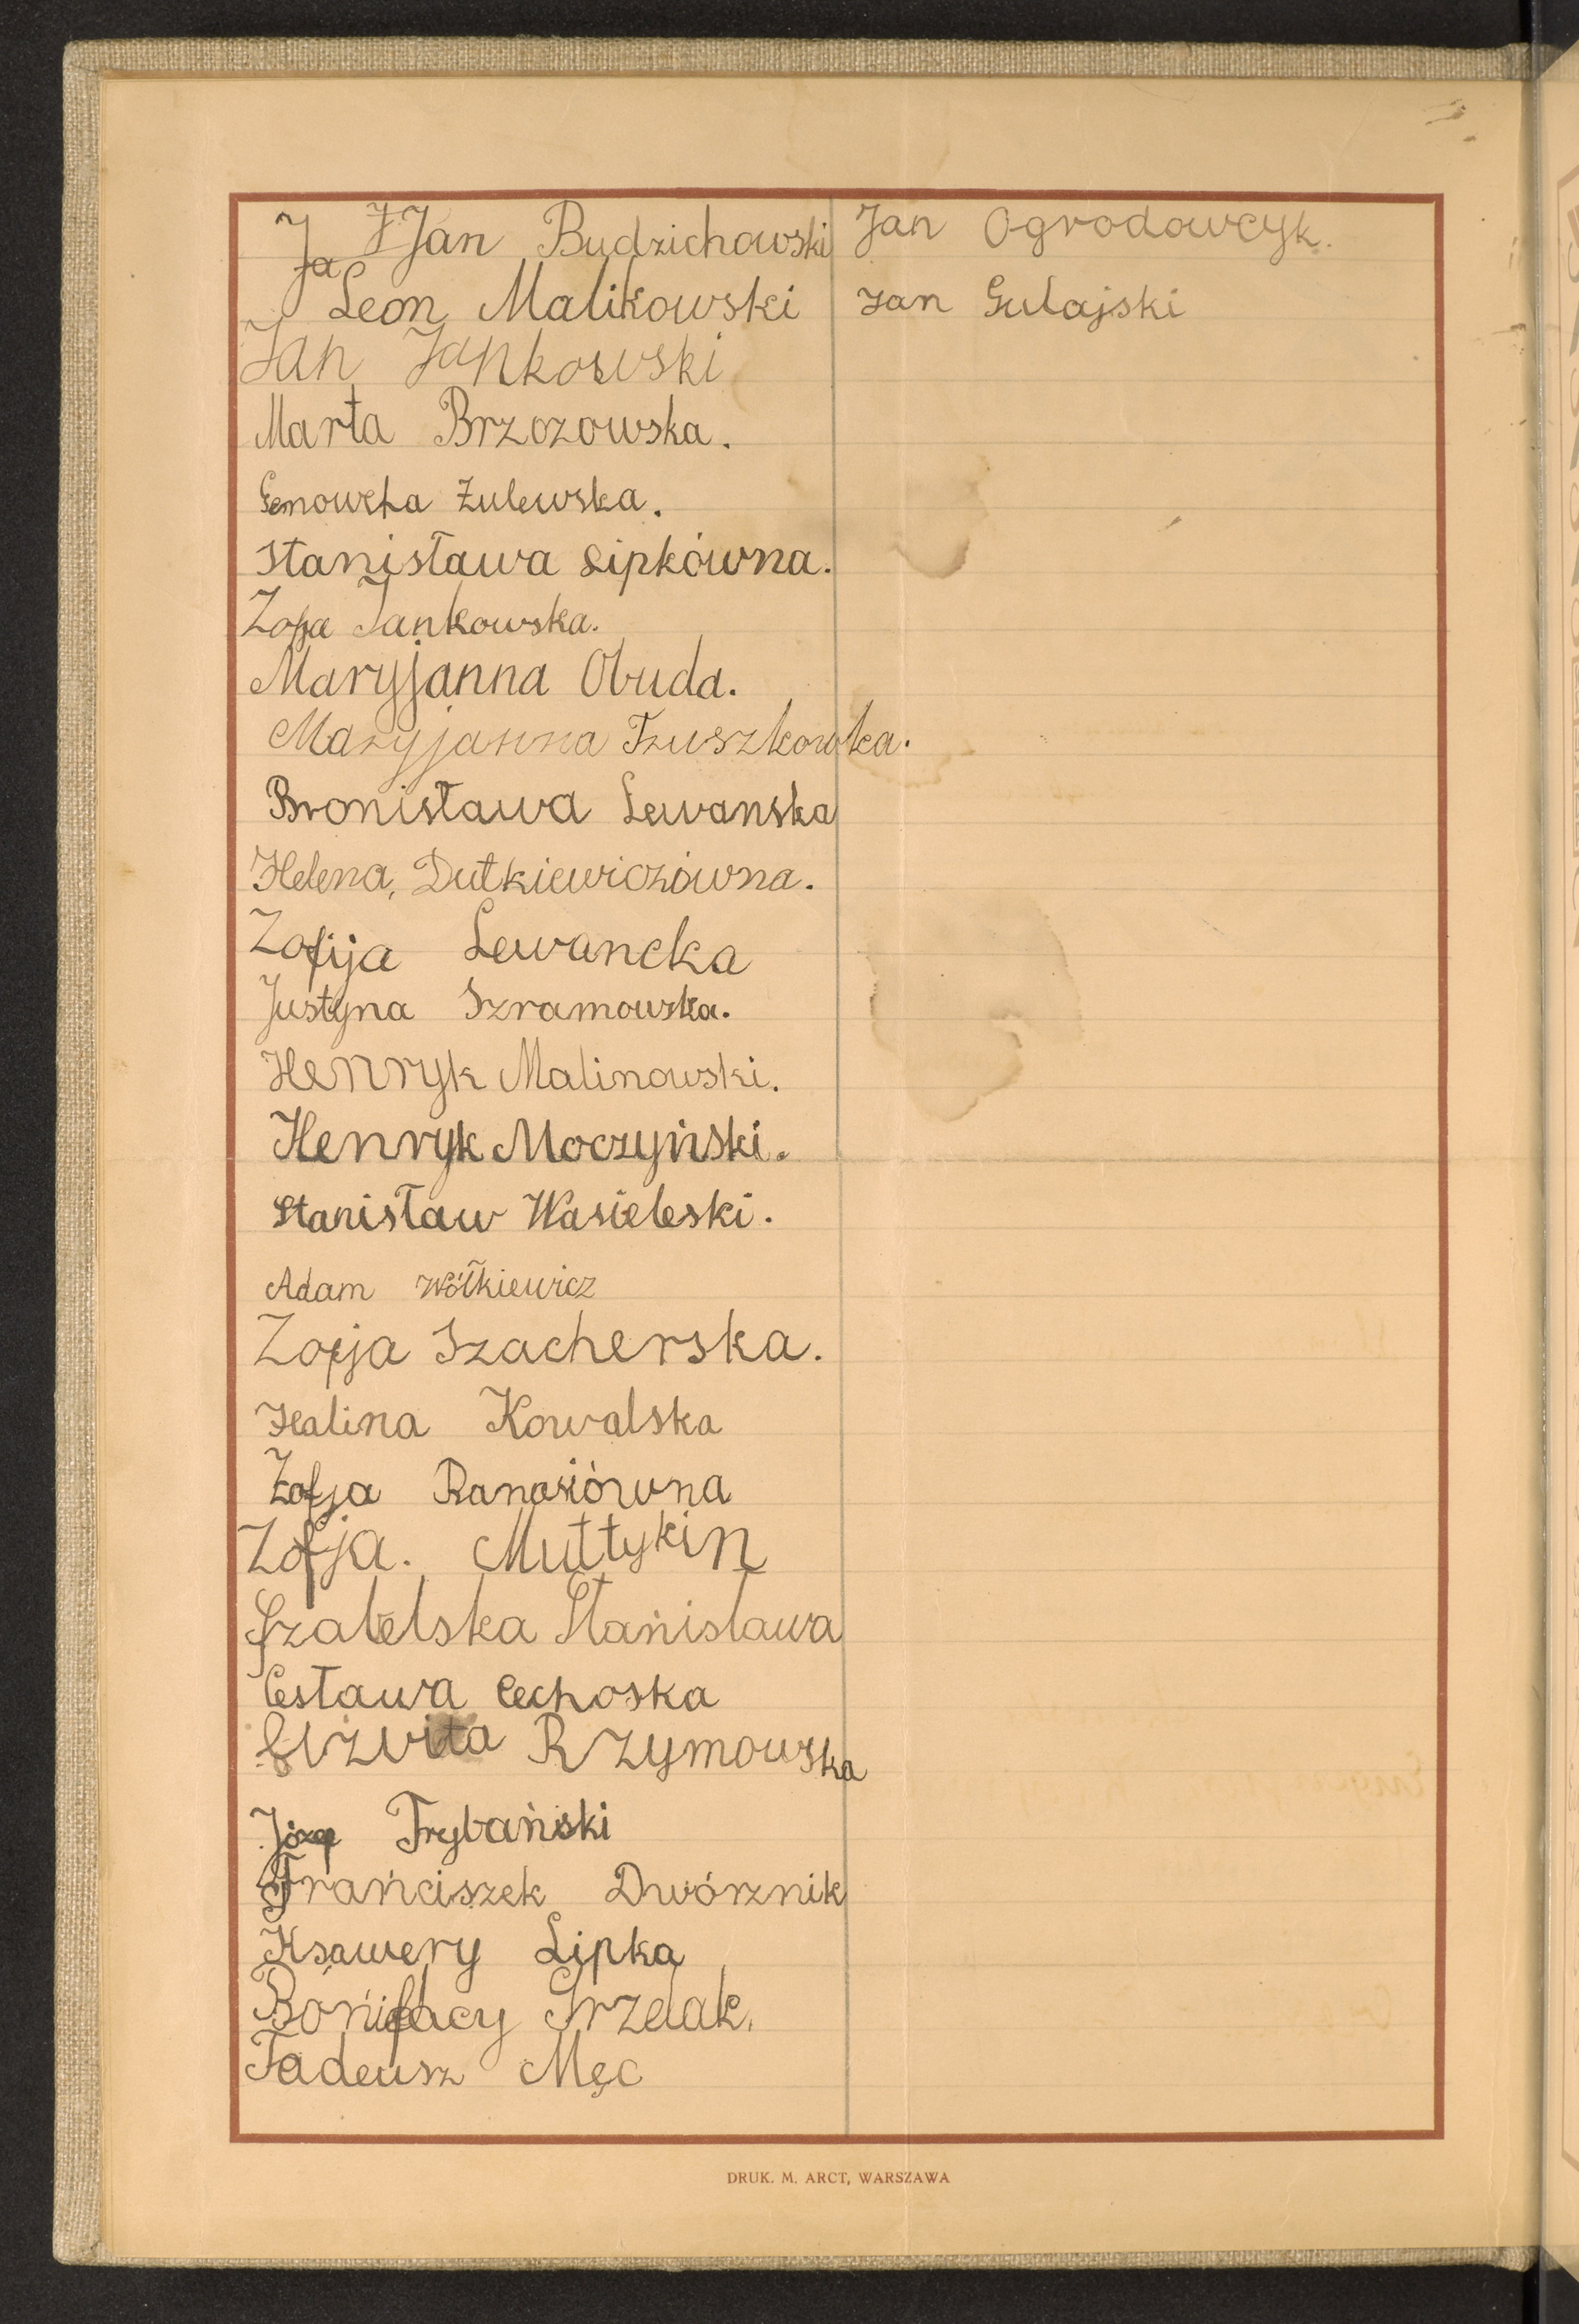 J J Jan Budzichowski
Ja Leon Malikowski
Jan Jankowski
Marta Brzozowska.
Genowefa Żulewska.
Stanisława Lipkówna.
Zofja Jankowska.
Maryjanna Obuda.
Maryjanna Truszkowka.
Bronisława Lewanska
Helena, Dutkiewiczówna.
Zofija Lewancka
Justyna Szramowska.
Henryk Malinowski.
Henryk Moczyński.
Stanisław Wasieleski.
Adam Wółkiewicz
Zofja Szacherska.
Halina Kowalska
Zofja Banasiówna
Zofja. Muttykin
Szatelska Stanisława
Cesława Cechoska
Elzvita Rzymowska
Józef Trybański
Frańciszek Dwórznik
Ksawery Lipka
Bonifacy Grzelak.
Tadeusz Męc
Jan Ogrodowcyk.
Jan Gulajski
DRUK. M. ARCT, WARSZAWA